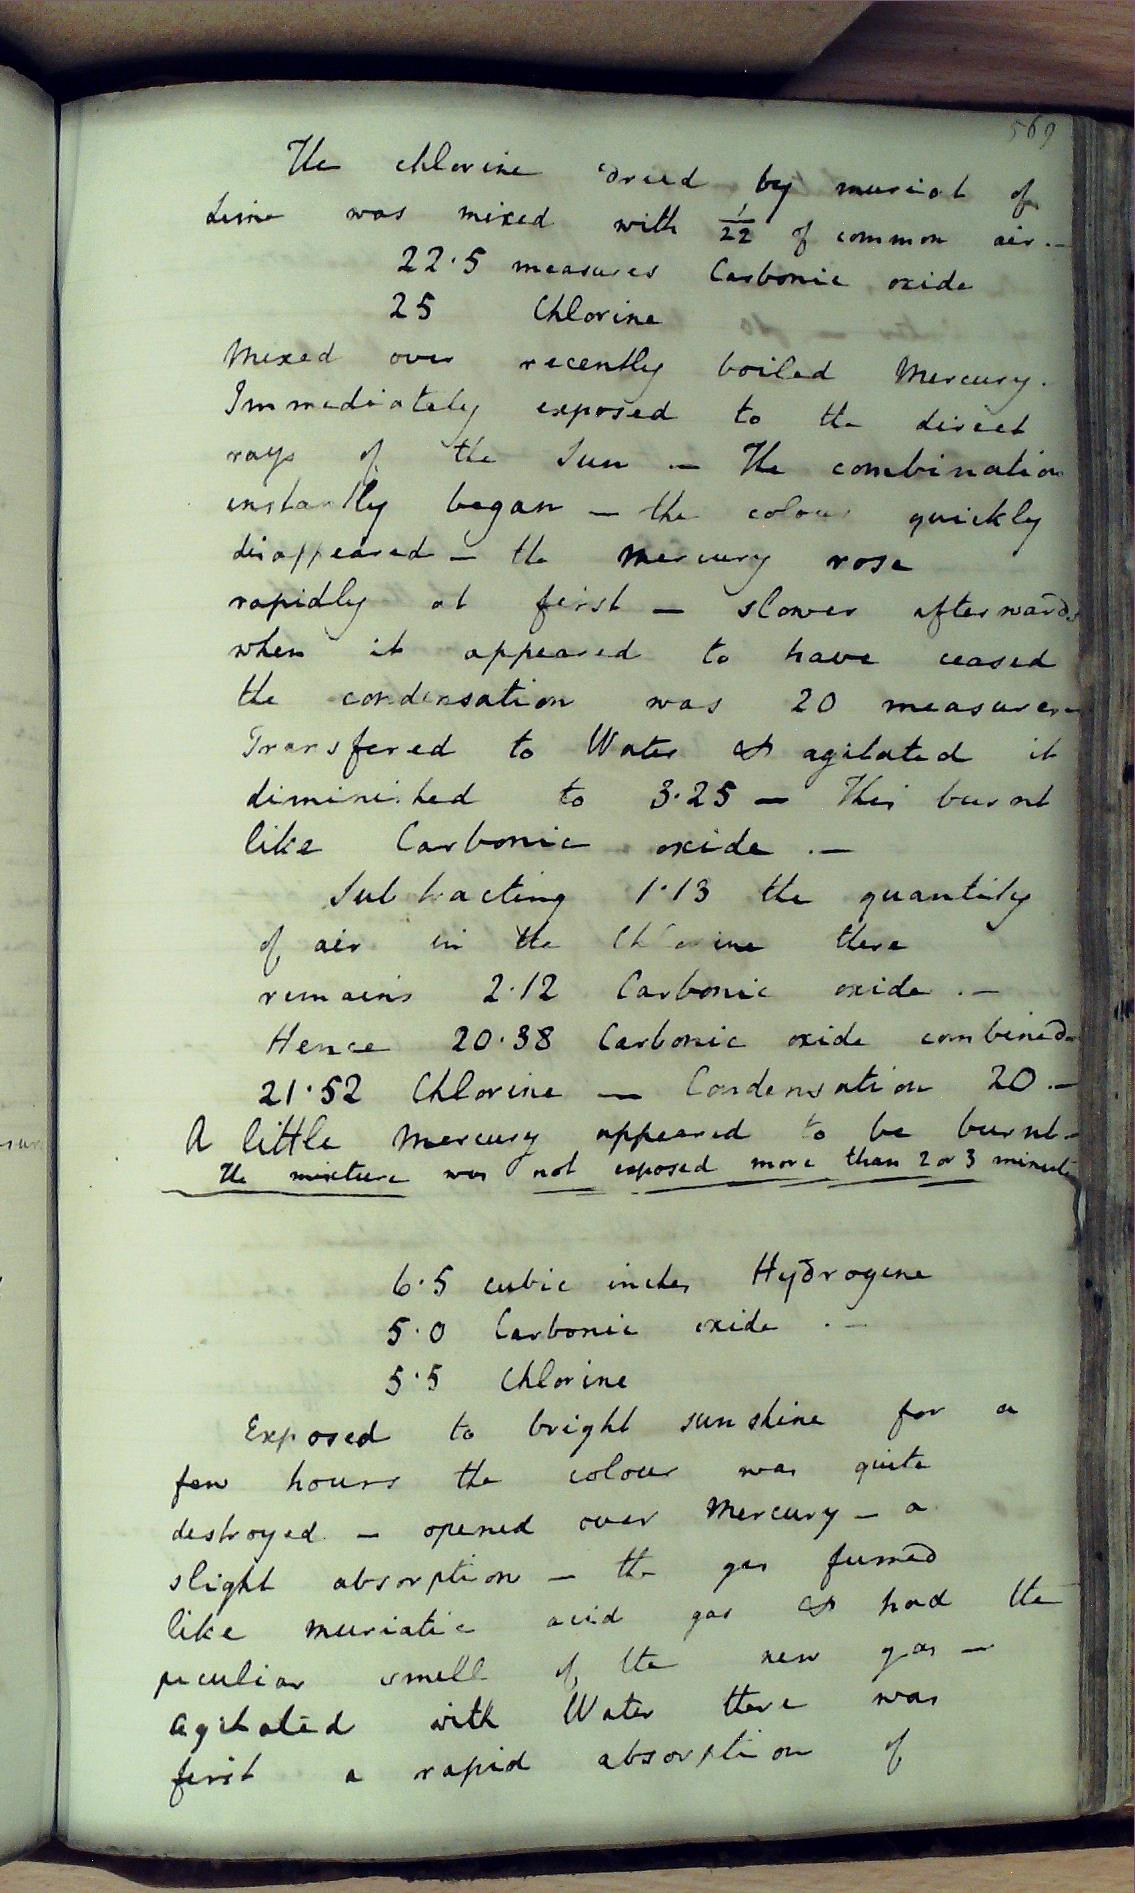 569
The chlorine dried by muriat of
Lime was mixed with 1/22 of common air. —
22.5 measures Carbonic oxide
25 Chlorine
Mixed over recently boiled Mercury.
Immediately exposed to the direct
rays of the Sun — The combination
instantly began — the colour quickly
disappeared — the Mercury rose
rapidly at first — slower afterwards
when it appeared to have ceased
the condensation was 20 measures
Transfered to Water & agitated it
diminished to 3.25 — This burnt
like Carbonic oxide. —
Subtracting 1.13 the quantity
of air in the Chlorine there
remains 2.12 Carbonic oxide. —
Hence 20.38 Carbonic oxide combined
21.52 Chlorine — Condensation 20. —
A little Mercury appeared to be burnt. —
The mixture was not exposed more than 2 or 3 minutes
6.5 cubic inches Hydrogene
5.0 Carbonic oxide. —
5.5 Chlorine
Exposed to bright sunshine for a
few hours the colour was quite
destroyed — opened over Mercury — a
slight absorption — the gas fumed
like Muriatic acid gas & had the
peculiar smell of the new gas —
Agitated with Water there was
first a rapid absorption of